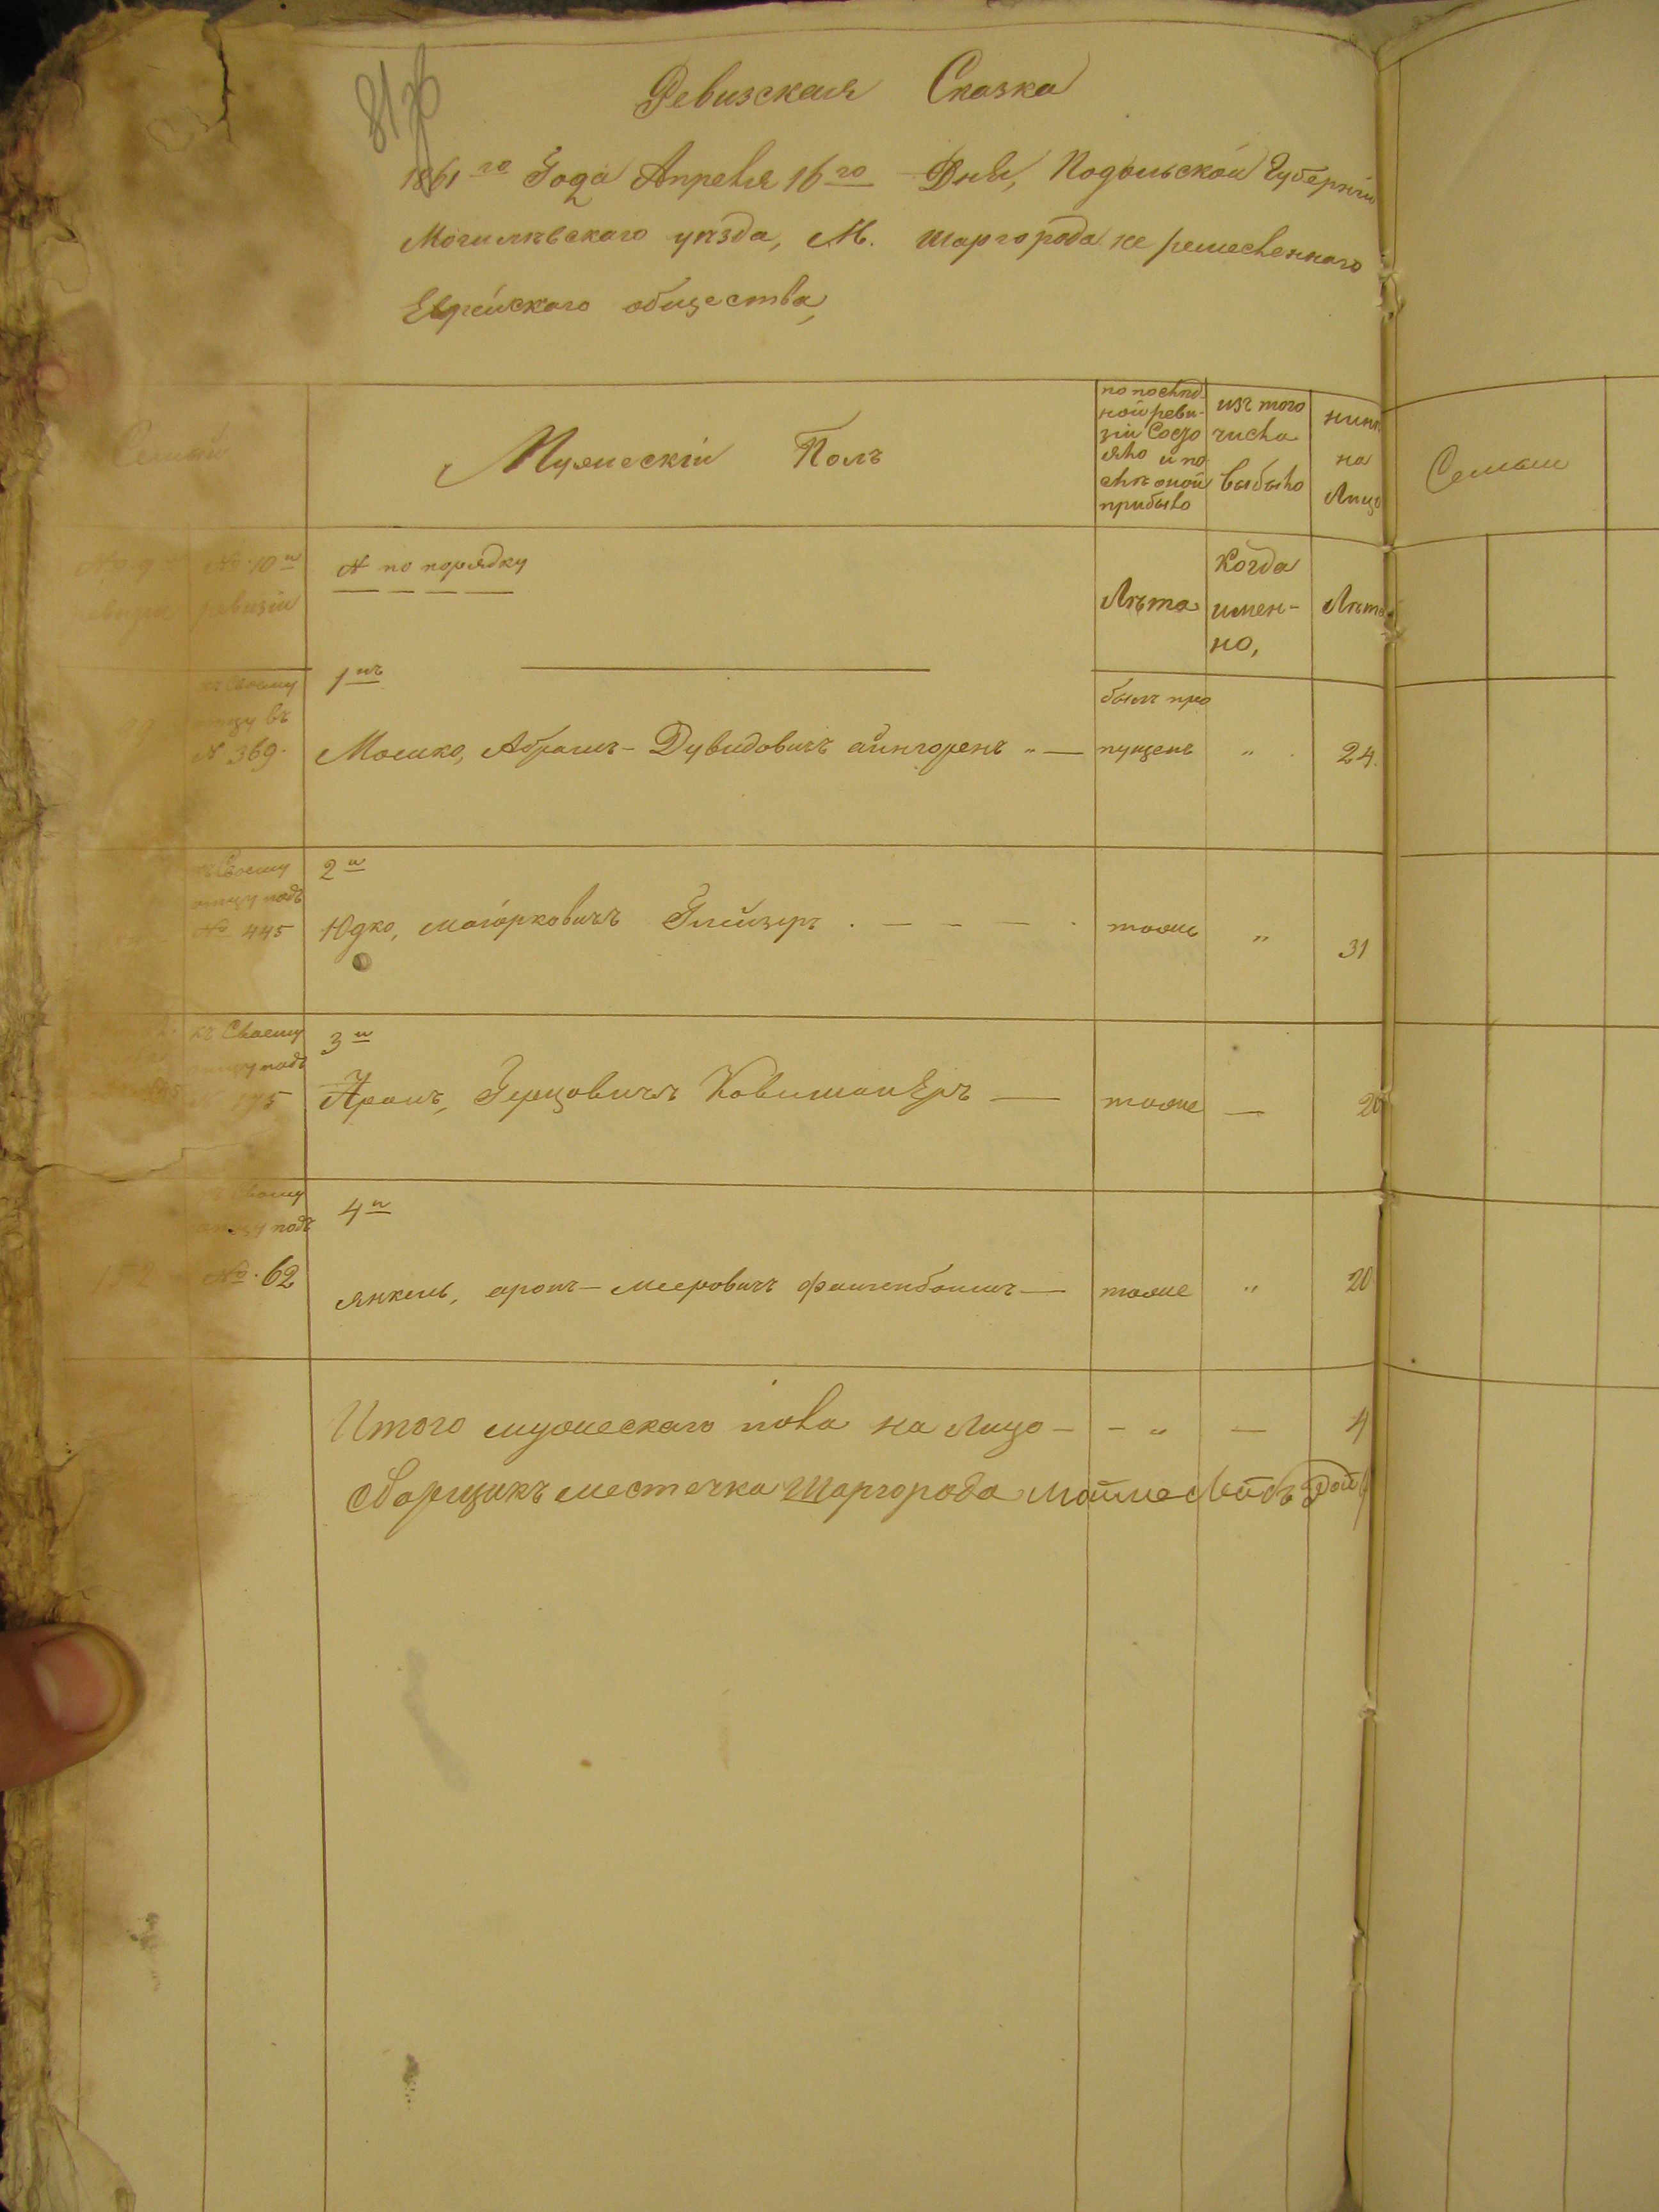 Ревизская Сказка
1861го Года Апреля 16го Дня, Подольской Губерніи
Могилѣвскаго уѣзда, М. Шаргорода не ремесленнаго
Еврейскаго общества,
Семьи
Мужескій Полъ
по послѣд-
ной реви-
зіи Состо
яло и по
слѣ оной
прибыло
изъ того
числа
выбыло
нынѣ
на
Лицо
Семьи
№ 9й
ревизіи
№ 10й
ревизіи
№ по порядку
Лѣта
Когда
имен-
но,
Лѣта
къ Своему
отцу въ
№ 369.
1й
Мошко, Абрамъ-Дувидовичъ айнгоренъ
былъ про
пущенъ
"
24.
къ Своему
отцу подъ
№ 445
2й
Юдко, маіорковичъ Глейзеръ
тоже
"
31
къ Своему
отцу подъ
3й
Аронъ, Герцовичъ
тоже
—
20
къ Своему
отцу подъ
№ 62
4й
янкель, аронъ-мееровичъ
тоже
"
20
Итого мужескаго пола на Лицо — - " — 4
Сборщикъ местечка Шаргорода